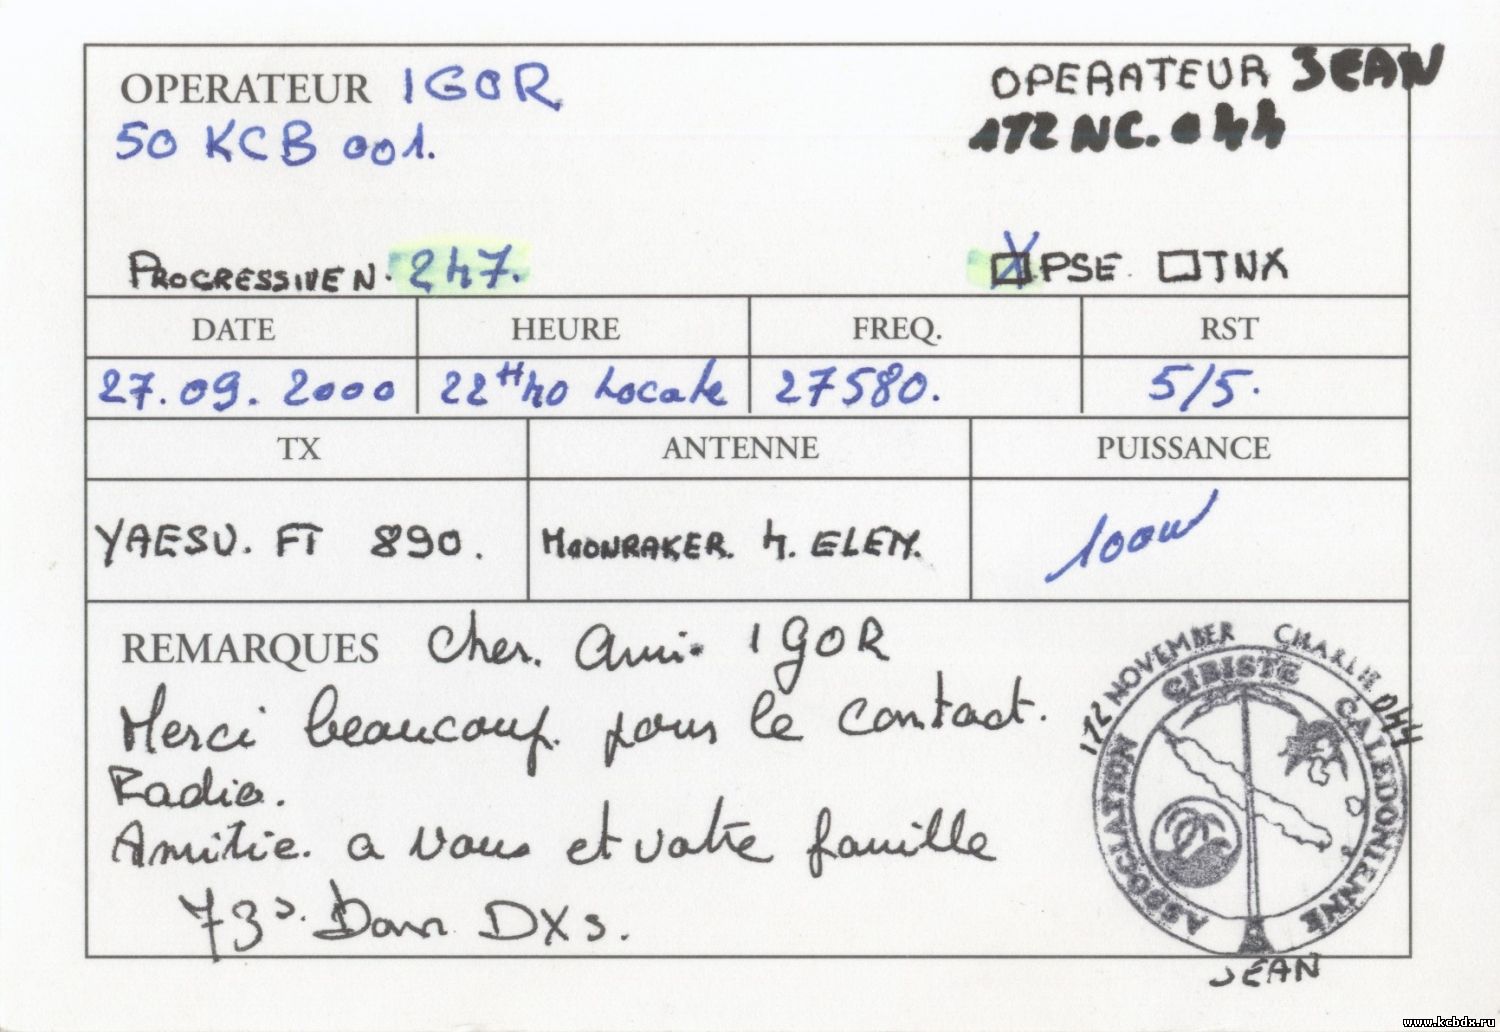 OPERATEUR IGOR
50 KCB 001.
OPERATEUR JEAN
172 NC. 044
PROGRESSIVE N. 247.
PSE. TNX
DATE HEURE FREQ. RST
27.09.2000 22H40 Locale 27580. 5/5.
TX ANTENNE PUISSANCE
YAESU. FT 890. MOONRAKER. 4. ELEM. 100W
REMARQUES Cher. Ami. IGOR
Merci beaucoup. pour le contact.
Radio.
Amitie. a vous et votre famille
73s. DXs.
172 NOVEMBER CHARLIE 044
ASSOCIATION CIBISTE CALEDONIENNE
JEAN
www.kcbdx.ru